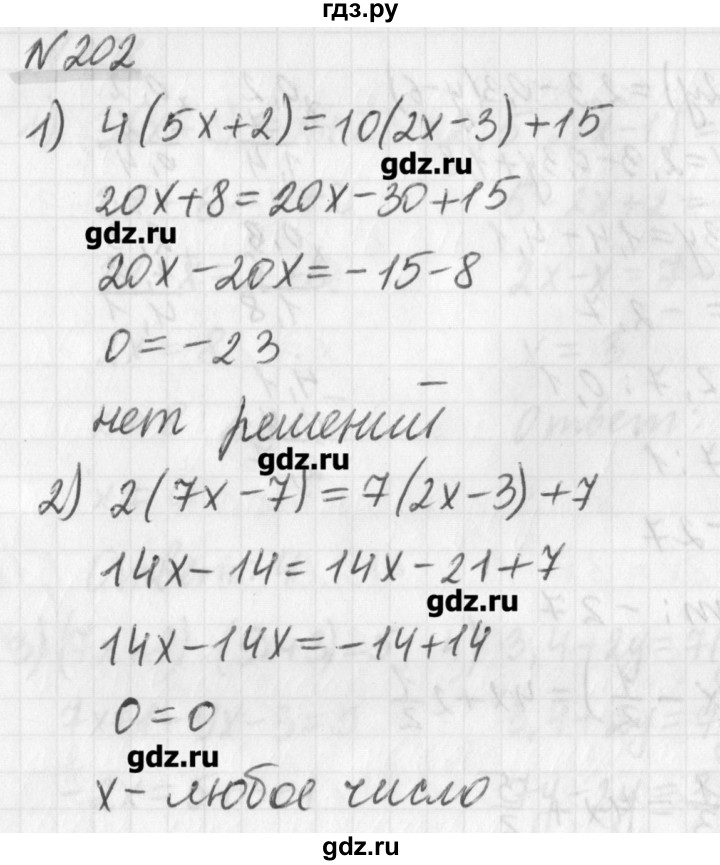 гдз.ру
N 202
1) 4(5x+2)=10(2x-3)+15
gdz.ru
20x+8=20x-30+15
gdz.ru
20x-20x=-15-8
0=-23
нет решений
gdz.ru
2) 2(7x-7)=7(2x-3)+7
14x-14=14x-21+7
gdz.ru
14x-14x=-14+14
0=0
gdz.ru
x-любое число
gdz.ru